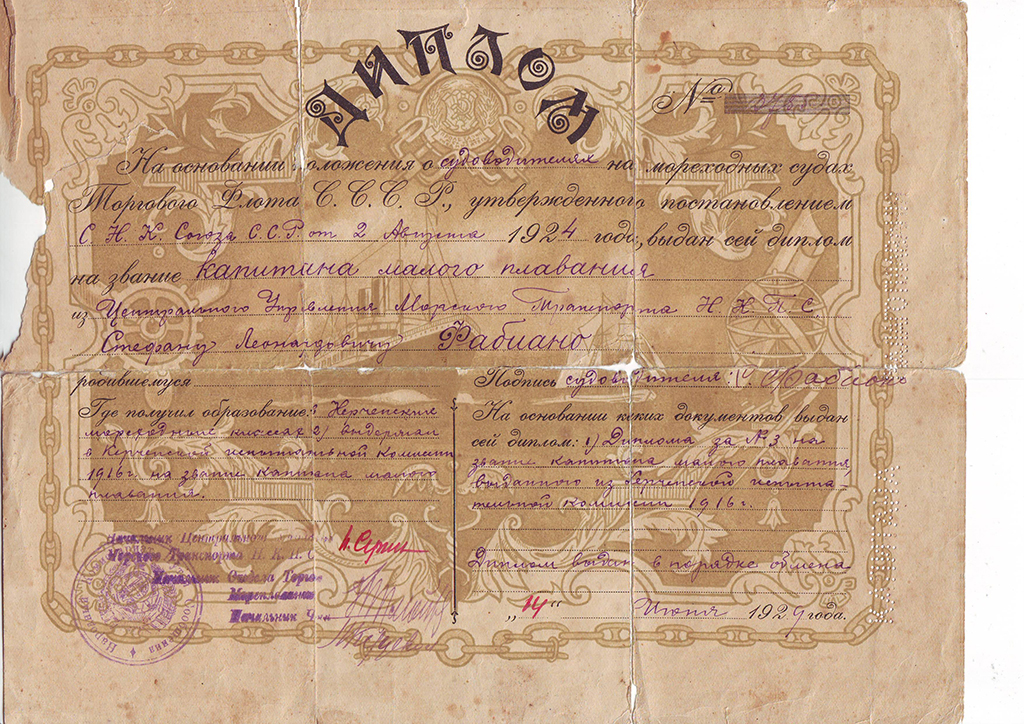 ДИПЛОМ
№
На основании положения о судоводителях на мореходных судах
Торгового Флота С. С. С. Р., утвержденного постановлением
С Н К Союза С.С.Р. от 2 Августа 1924 года, выдан сей диплом
на звание капитана малого плавания
из Центрального Управления Морского Транспорта Н. К. П. С.
Стефану Леонардовичу Фабиано
родившемуся
Подпись судоводителя: Фабиано
Где получил образование: 1) Керченские
мореходные классы 2) выдержал
в Керченской испытательной Комиссии
1916 г. на звание капитана малого
плавания.
На основании каких документов выдан
сей диплом: 1) Диплома за № 3 на
звание капитана малого плавания
выданного из Керченской испыта-
тельной комиссии 1916 г.
Диплом выдан в порядке обмена
"14" Июня 1929 года.
Начальник Центрального
Морского Транспорта Н. К. П. С.
Начальник Отдела Торгов
Мореплавания
Начальник